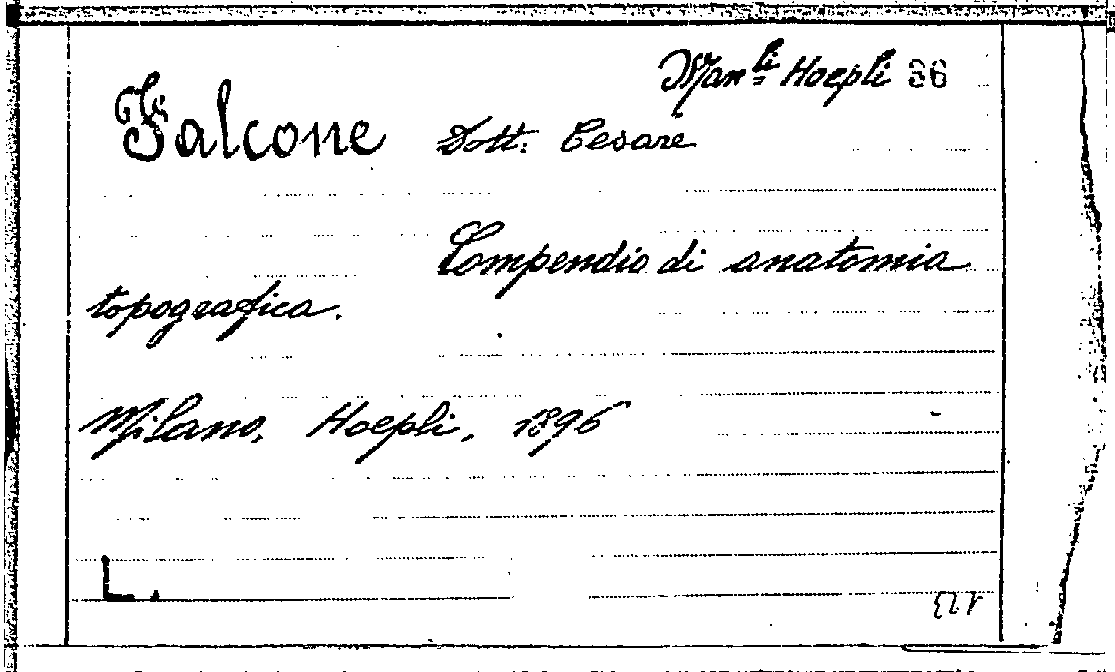 Man.li Hoepli 86
Falcone Dott. Cesare
Compendio di anatomia
topografica.
Milano, Hoepli, 1896
L.